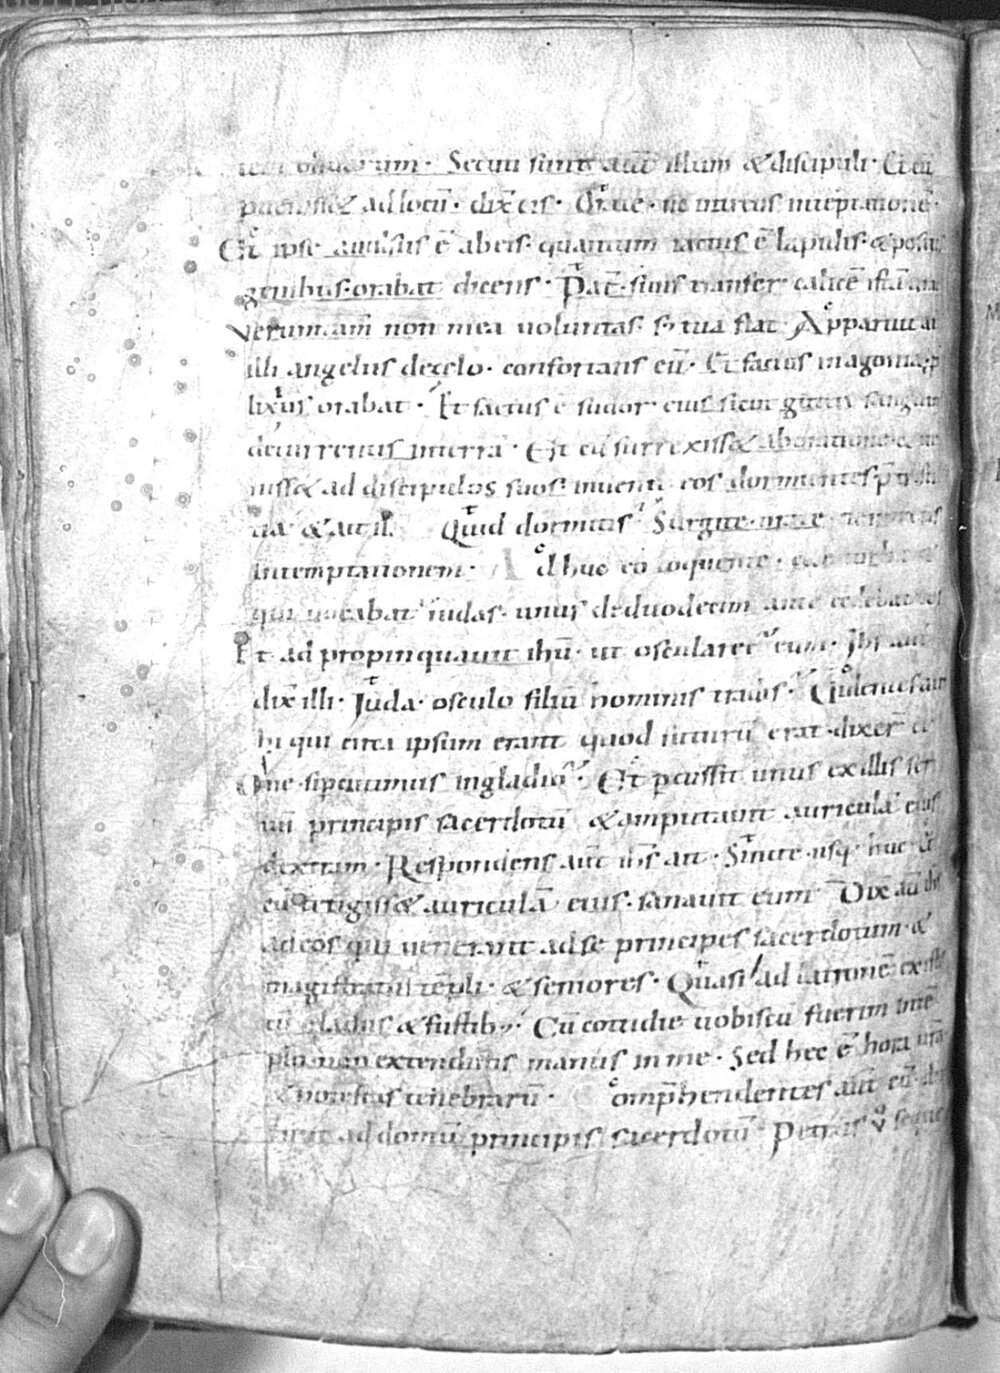 oliuarum. Secuti sunt aut̄ illum & discipuli. Et cū
puenisset ad locū. dix̄ eis. Orate. ne intretis intēptationē.
Et ipse auulsus ē ab eis. quantum iactus ē lapidis. & positis
genibus. orabat dicens. Pat̄. si uis transfer calicē istū a me
Veruntam̄ non mea uoluntas. s; tua fiat. Apparuit aū
illi angelus de celo. confortans eū. Et factus in agonia. p
lixius orabat. Et factus ē sudor eius sicut gutte sanguinis
decurrentis in terra. Et cū surrexiss& ab oratione. & ue
niss& ad discipulos suos. inuenit eos dormientes p̄ tristi
tia. & ait il. Quid dormitis? Surgite. orate. ne intretis
in temptationem. Adhuc eo loquente.
qui uocabat iudas. unus de duodecim ante cedebat eos
Et ad propinquauit ih̄u. ut oscularet eum. Ih̄s aut̄
dix̄ illi. Iuda. osculo filiū hominis tradis. Uidentes aut̄
hi qui circa ipsum erant quod futurū erat. dixer̄ ei
Dn̄e. si pcutimus in gladio? Et pcussit unus ex illis ser
uū principis sacerdotū & amputauit auriculā eius
dextram. Respondens aut̄ ih̄s ait. Sinite usq; huc. Et
cū tetigiss& auriculā eius. sanauit eum. Dix̄ aū ih̄s
ad eos qui uenerant ad se principes sacerdotum. &
magistratus tēpli. & seniores. Quasi ad latronē existis
cū gladiis & fustib; Cū cottidie uobiscū fuerim in tē
plo. non extendistis manus in me. Sed hec ē hora ur̄a
& potestas tenebrarū. omp̄hendentes aut̄ eū. du
xerunt ad domū principis sacerdotū. Petrus ů seque